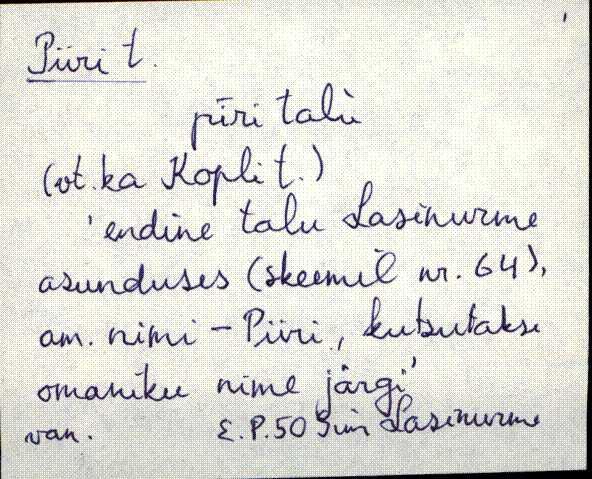 Piiri t.
pīri talù
(vt. ka Kopli t.)
'endine talu Lasinurme
asunduses (skeemil nr. 64),
am. nimi - Piiri, kutsutakse
omaniku nime järgi'
van. E.P. 50 Sim Lasinurme